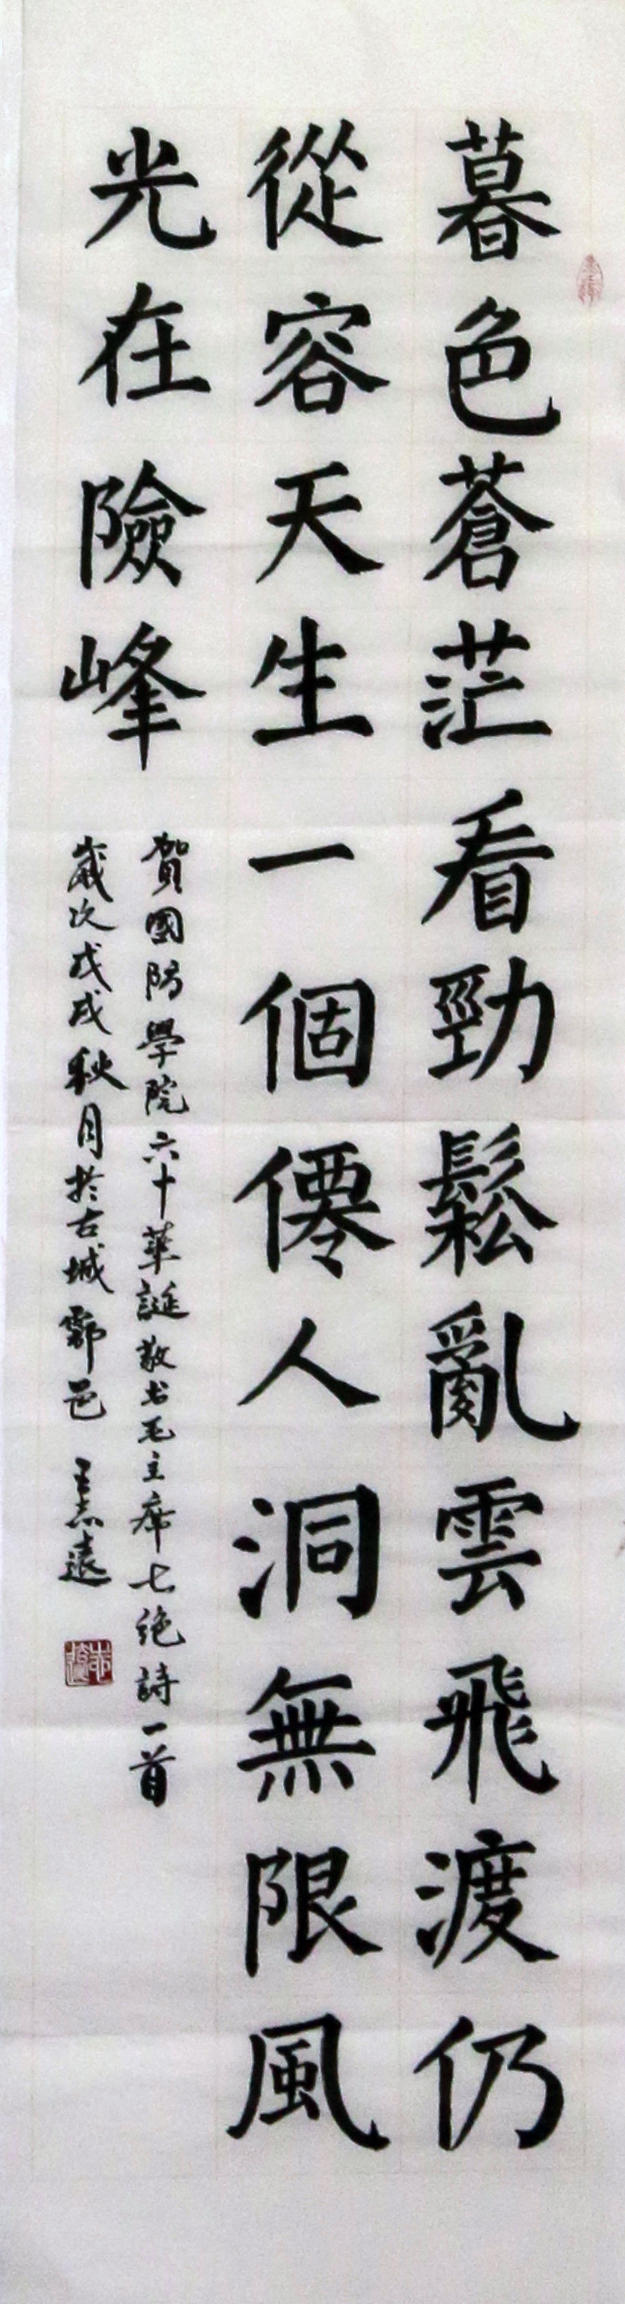 暮色蒼茫看勁鬆亂雲飛渡仍
從容天生一個僊人洞無限風
光在險峰
賀國防學院六十華誕敬书毛主席七绝詩一首
歲次戊戌秋月於古城鄠邑 王志遠